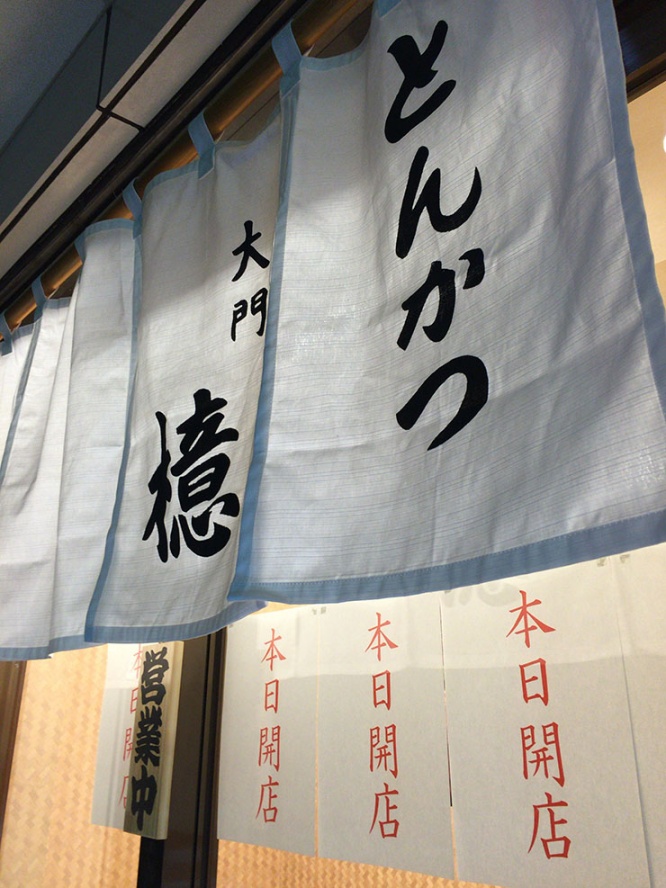 とんかつ
大門
檍
本日開店
本日開店
本日開店
本日開店
営業中